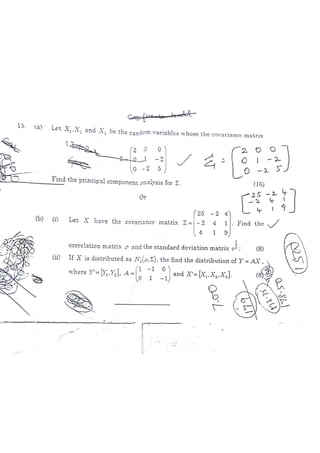 15. (a) Let X₁, X₂ and X₃ be the random variables whose the covariance matrix
Σ = (2 0 0
0 1 -2
0 -2 5)
Σ = [2 0 0
0 1 -2
0 -2 5]
Find the principal component analysis for Σ. (16)
Or
[25 -2 4
-2 4 1
4 1 9]
(b) (i) Let X have the covariance matrix Σ = (25 -2 4
-2 4 1
4 1 9). Find the
correlation matrix ρ and the standard deviation matrix V^½. (8)
(ii) If X is distributed as N₃(μ, Σ), the find the distribution of Y = AX,
where Y' = [Y₁, Y₂], A = (1 -1 0
0 1 -1) and X' = [X₁, X₂, X₃]. (8)